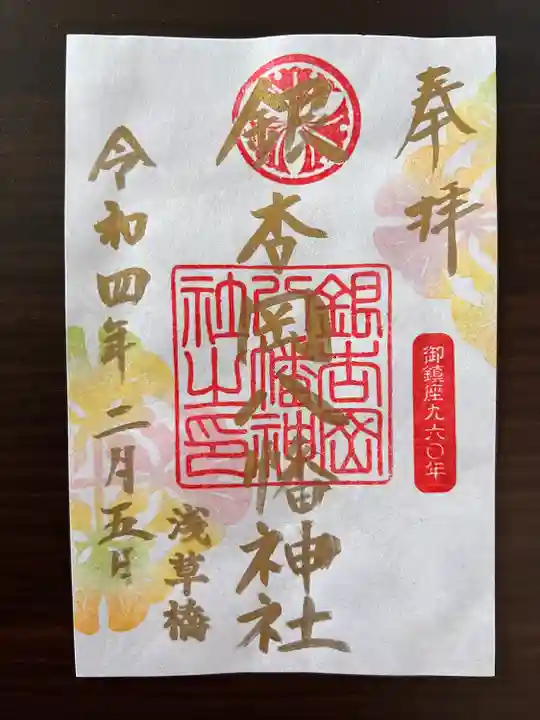 奉拝
御鎮座九六〇年
銀杏岡八幡神社
銀杏岡
八幡神
社之印
浅草橋
令和四年二月五日